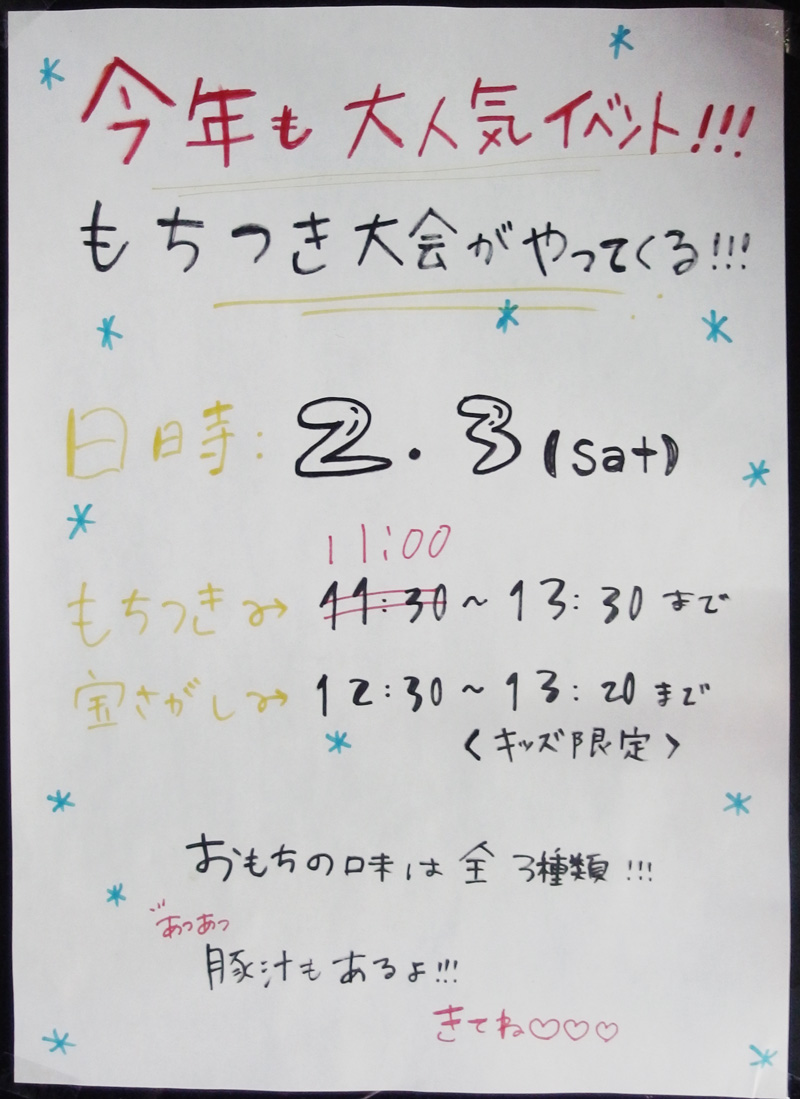 今年も大人気イベント!!!
もちつき大会がやってくる!!!
日時: 2.3(sat)
11:00
もちつき→ 11:30~13:30まで
宝さがし→ 12:30~13:20まで
<キッズ限定>
おもちの味は全3種類!!!
あつあつ
豚汁もあるよ!!!
きてね♡♡♡